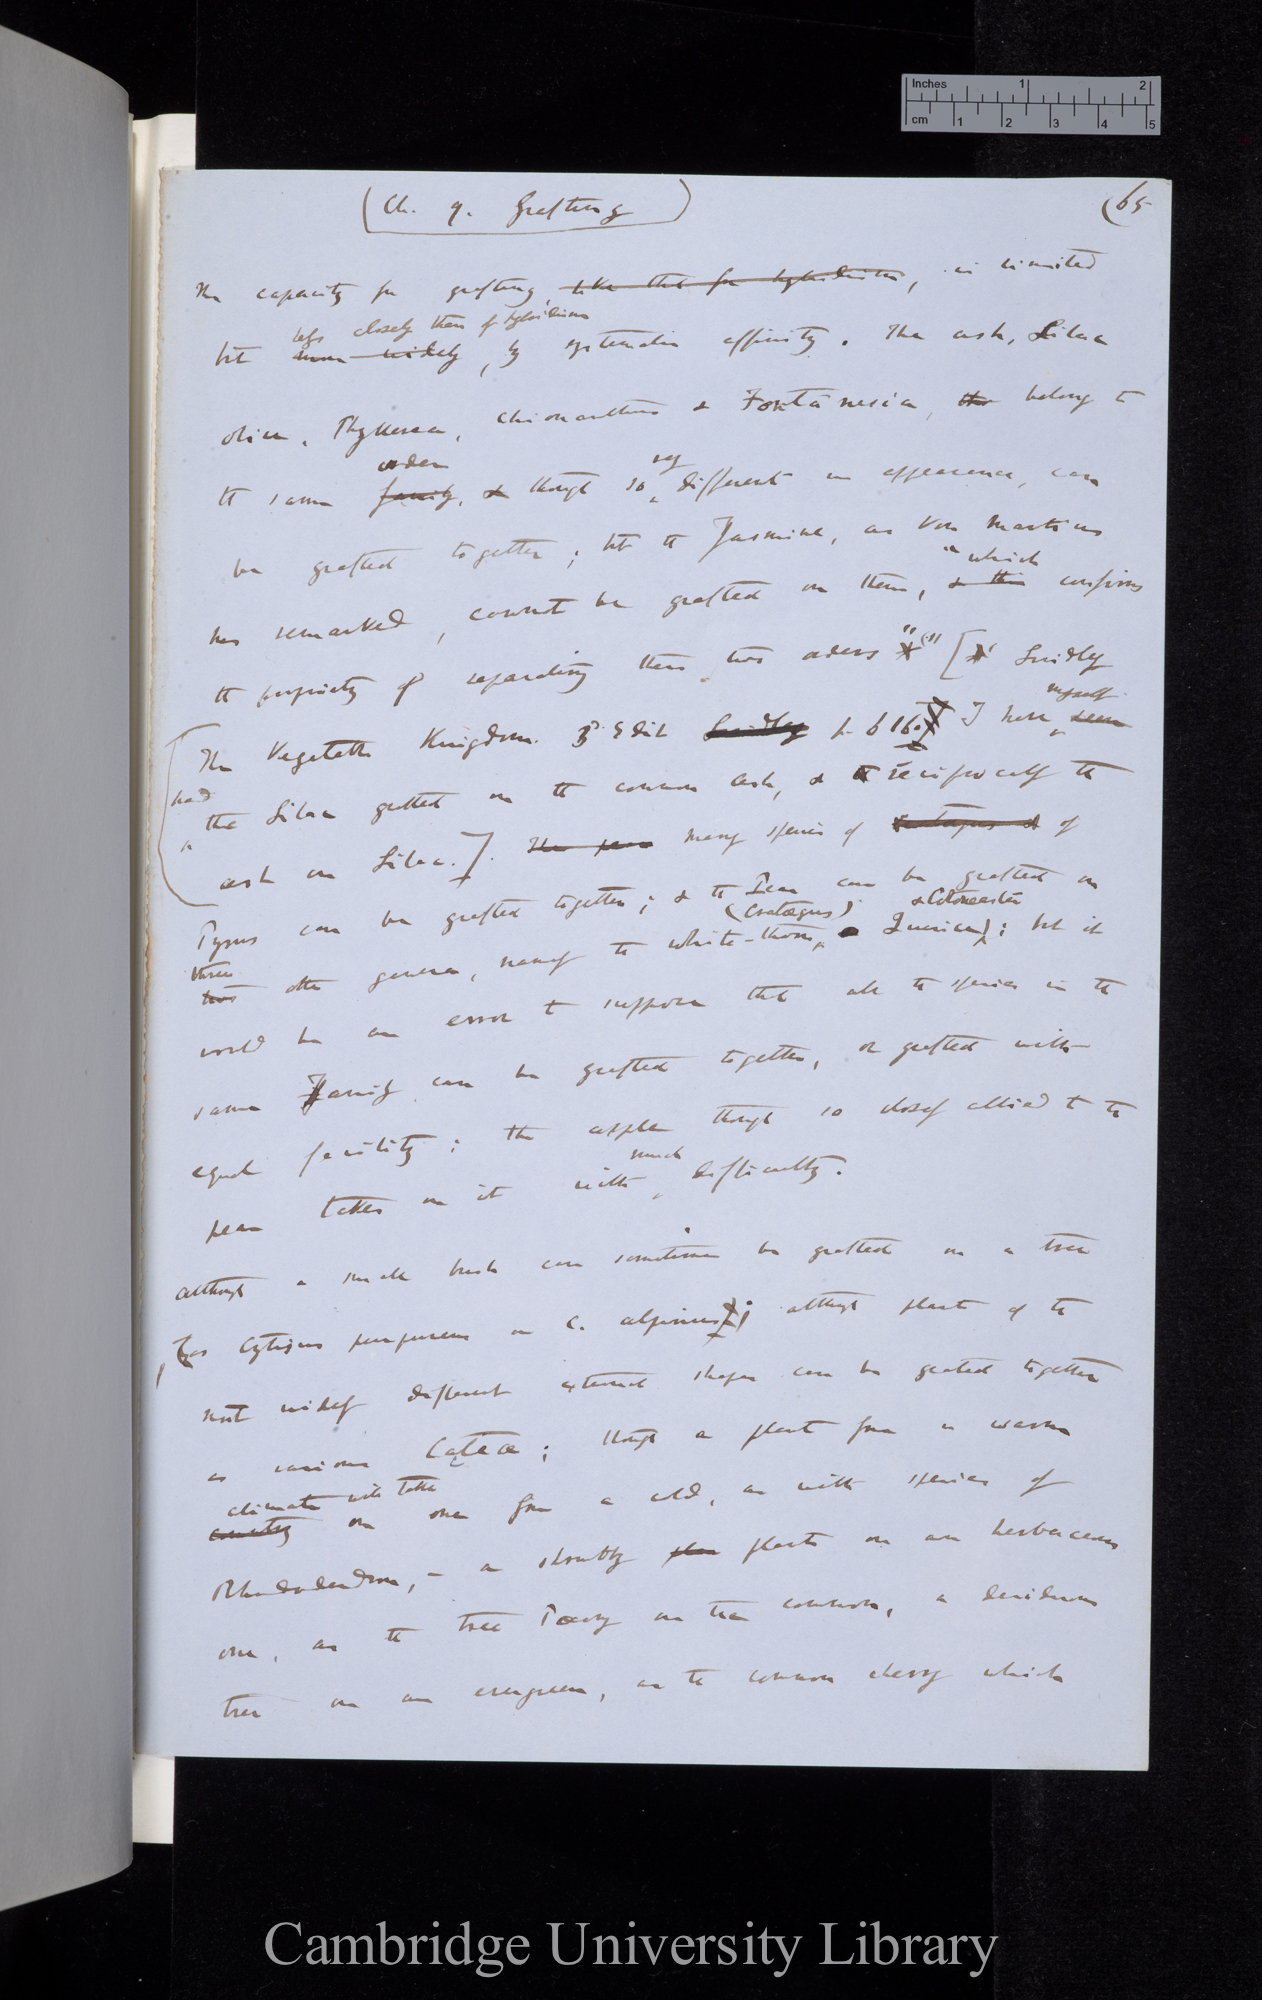 Inches 1 2
cm 1 2 3 4 5
(Ch. 9. Grafting)
(65
The capacity for grafting, like that for hybridism, is limited
less closely than of hybridism
but more widely, by systematic affinity. The ash, Lilac
olive, Phyllerea, Chionanthus & Fontanesia, the belong to
order very
the same family, & though so different in appearance, can
be grafted together; but the Jasmine, as Von Martius
"which
has remarked, cannot be grafted on them, & this confirms
the propriety of separating these two orders" [Lindley
myself
The Vegetable Kingdom. 3d. Edit Lindley p. 616. I have seen
had
the Lilac grafted on the common ash, & reciprocally the
ash on Lilac.]. The pear Many species of Crategus & of
Pyrus can be grafted together; & the Pear can be grafted on
three (Crataegus) & Cotoneaster
two other genera, namely the white-thorn, Quince; but it
would be an error to suppose that all the species in the
same Family can be grafted together, or grafted with
equal facility; the apple though so closely allied to the
much
pear takes on it with difficulty.
Although a small bush can sometimes be grafted on a tree
as Cytisus purpureus on C. alpinus; although plants of the
most widely different external shapes can be grafted together
as various Cacteae; though a plant from a warm
climate will take
country on one from a cold, as with species of
Rhododendron, – a shrubby plan plant on an herbaceous
one, as the tree Poeony on the common, a deciduous
tree on an evergreen, as the common cherry which
Cambridge University Library